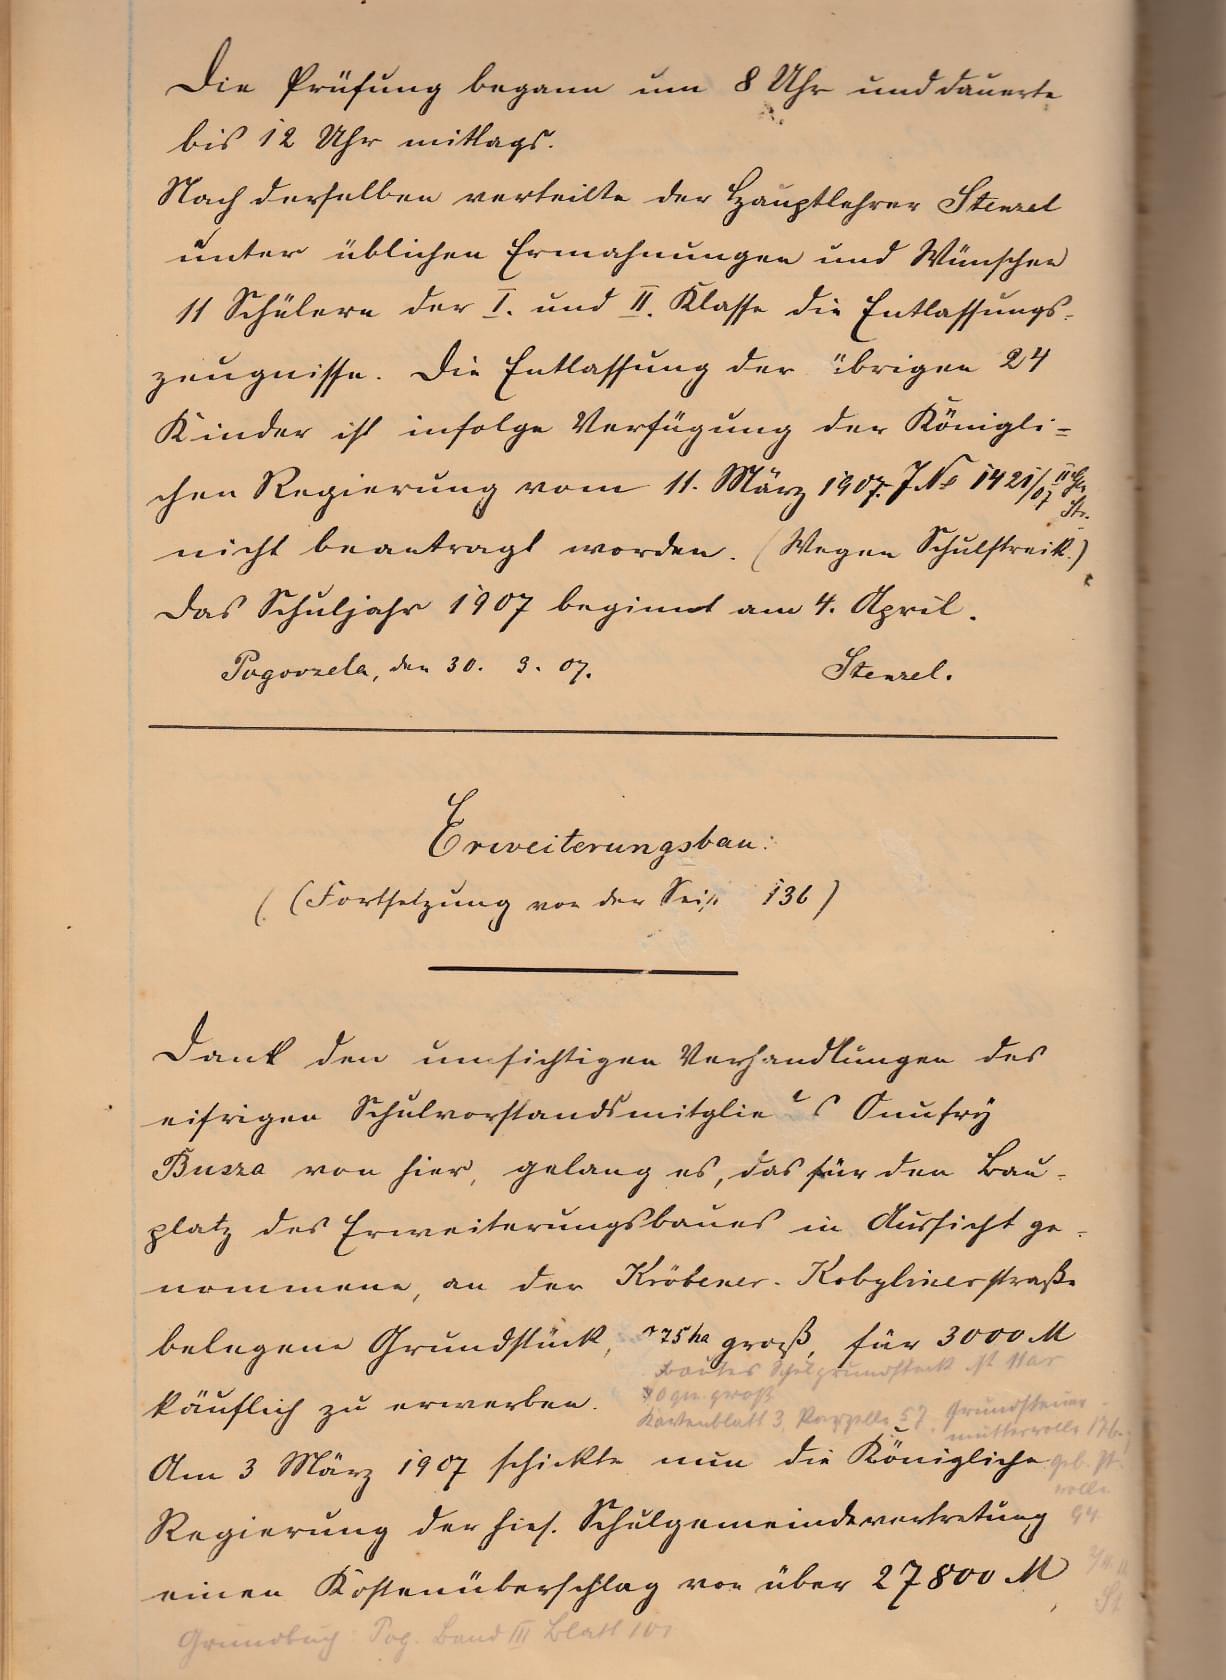 Die Prüfung begann um 8 Uhr und dauerte
bis 12 Uhr mittags.
Nach derselben verteilte der Hauptlehrer Stenzel
unter üblichen Ermahnungen und Wünschen
11 Schülern der I. und II. Klasse die Entlassungs-
zeugnisse. Die Entlassung der übrigen 24
Kinder ist infolge Verfügung der Königli=
chen Regierung vom 11. März 1907. J No 1421/07 II
nicht beantragt worden. (Wegen Schulstreik.)
Das Schuljahr 1907 beginnt am 4. April.
Pogorzela, den 30. 3. 07. Stenzel.
Erweiterungsbau:
(Fortsetzung von der Seite 136)
Dank den umsichtigen Verhandlungen des
eifrigen Schulvorstandsmitglieds Onufry
Busza von hier, gelang es, das für den Bau-
platz des Erweiterungsbaues in Aussicht ge-
nommene, an der Kröbener-Kobylinerstraße
belegene Grundstück, 75 ha groß, für 3000 M
Schulgrundstück ist 11 ar
70 qm groß
käuflich zu erwerben.
Kartenblatt 3, Parzelle 57, Grundsteuer-
mutterrolle 176,
Am 3 März 1907 schickte nun die Königliche
Geb. St.
rolle
Regierung der hies. Schulgemeindevertretung
94
einen Kostenüberschlag von über 27800 M
St
Grundbuch: Pog. Band III Blatt 101